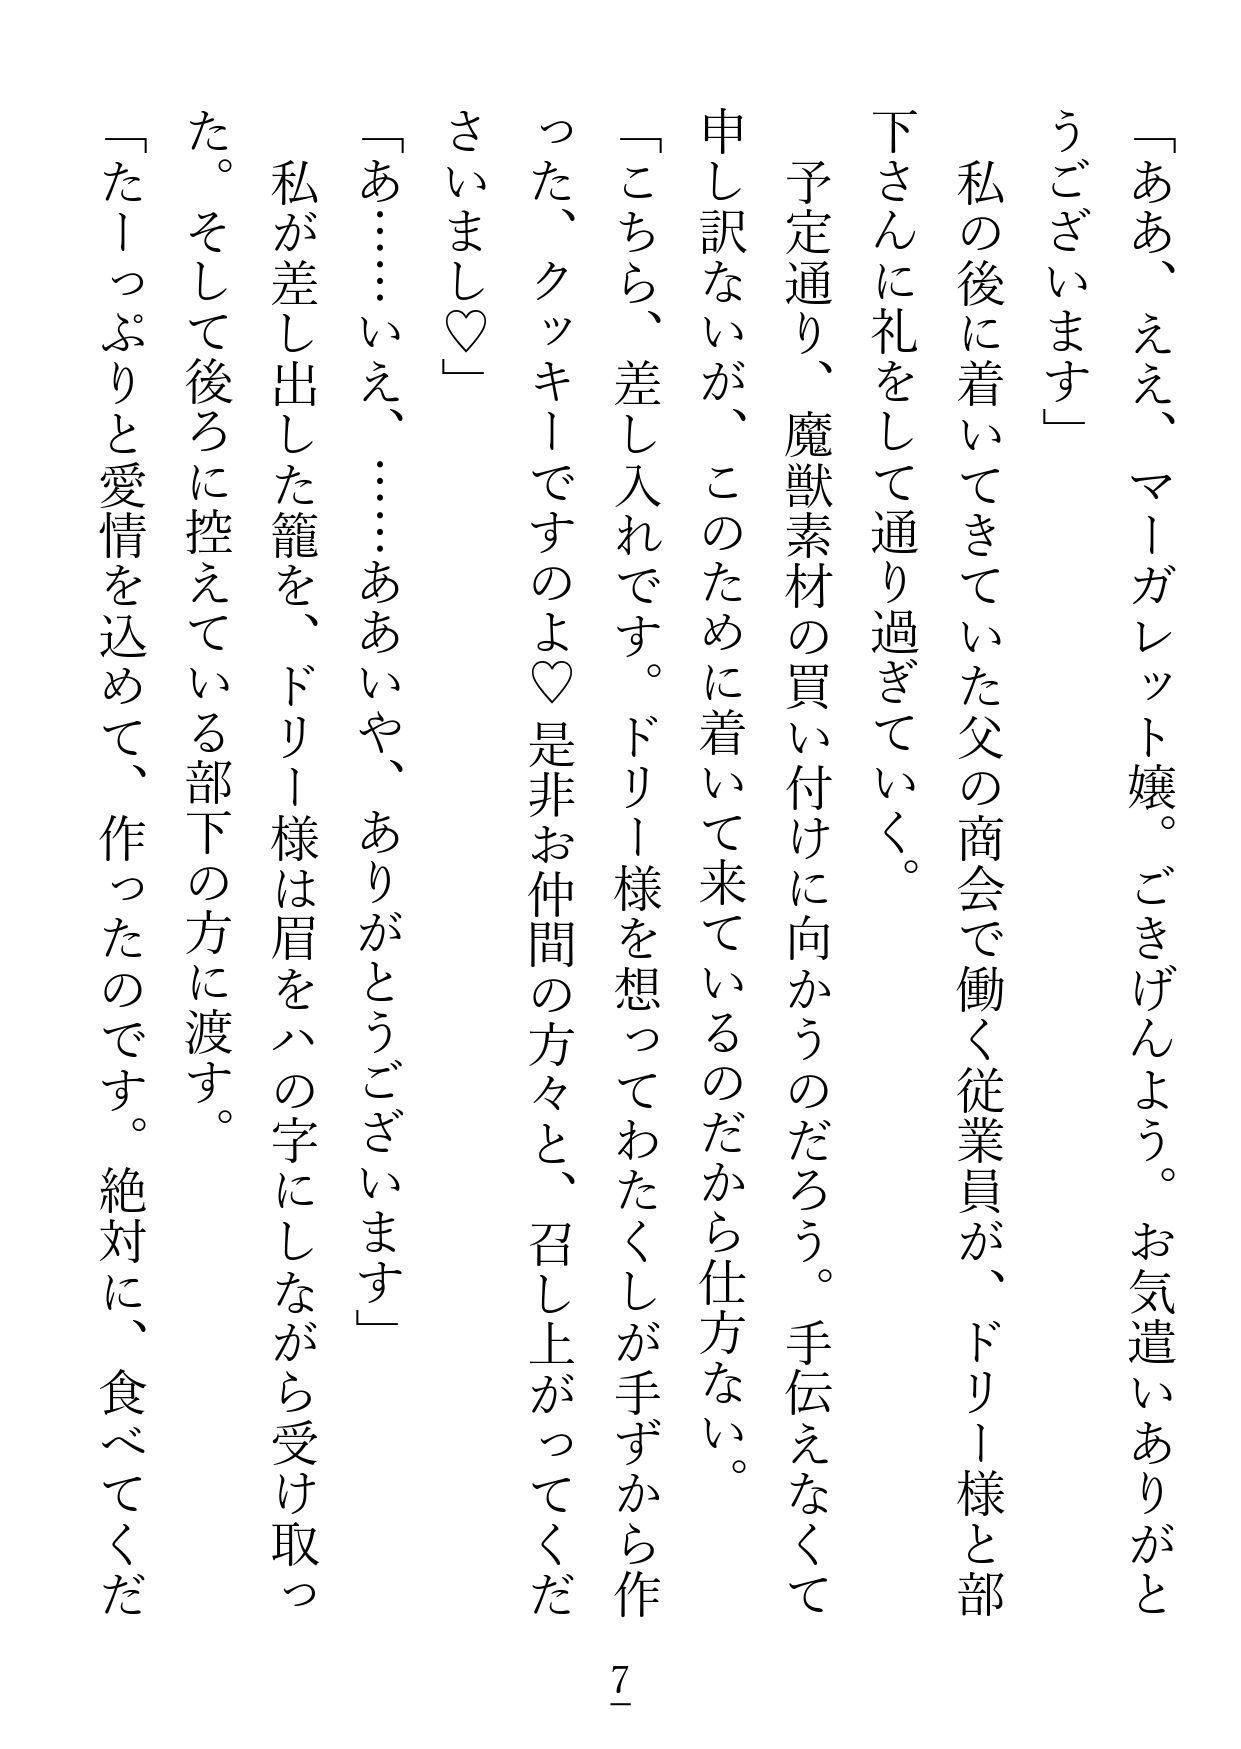 「ああ、ええ、マーガレット嬢。ごきげんよう。お気遣いありがと
うございます」
　私の後に着いてきていた父の商会で働く従業員が、ドリー様と部
下さんに礼をして通り過ぎていく。
　予定通り、魔獣素材の買い付けに向かうのだろう。手伝えなくて
申し訳ないが、このために着いて来ているのだから仕方ない。
「こちら、差し入れです。ドリー様を想ってわたくしが手ずから作
った、クッキーですのよ♡是非お仲間の方々と、召し上がってくだ
さいまし♡」
「あ……いえ、……ああいや、ありがとうございます」
　私が差し出した籠を、ドリー様は眉をハの字にしながら受け取っ
た。そして後ろに控えている部下の方に渡す。
「たーっぷりと愛情を込めて、作ったのです。絶対に、食べてくだ
7